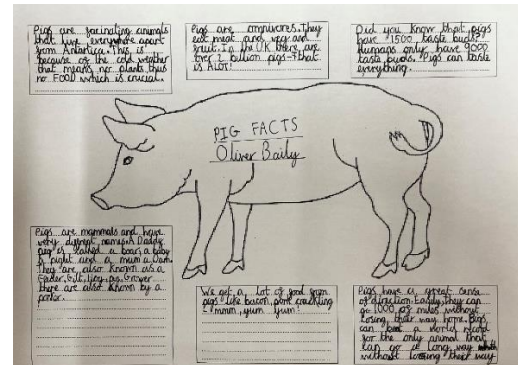 Pigs are facinating animals
that live everywhere apart
from Antartica. This, is
because of the cold weather
that means no plants thus
no FOOD which is crucial.
Pigs are omnivores. They
eat meat and veg and
fruit. In the UK there are
over 2 billion pigs - that
is ALOT!
Did you know that pigs
have 1500 taste buds?
Humans only have 9000
taste buds. Pigs can taste
everything.
PIG FACTS
Oliver Baily
Pigs are mammals and have
very diffrent names. A Daddy
pig is called a boar, a baby
a piglet and a mum a
They are also known as a
Gilt,
there are also known by a
We get a lot of food from
pigs like bacon, pork crackling
- mmm, yum yum!
Pigs have a great sense
of direction. Easily, they can
go 1000s of miles without
losing their way home. Pigs
can a world record
for the only animal that
can go a long way
without loosing their way